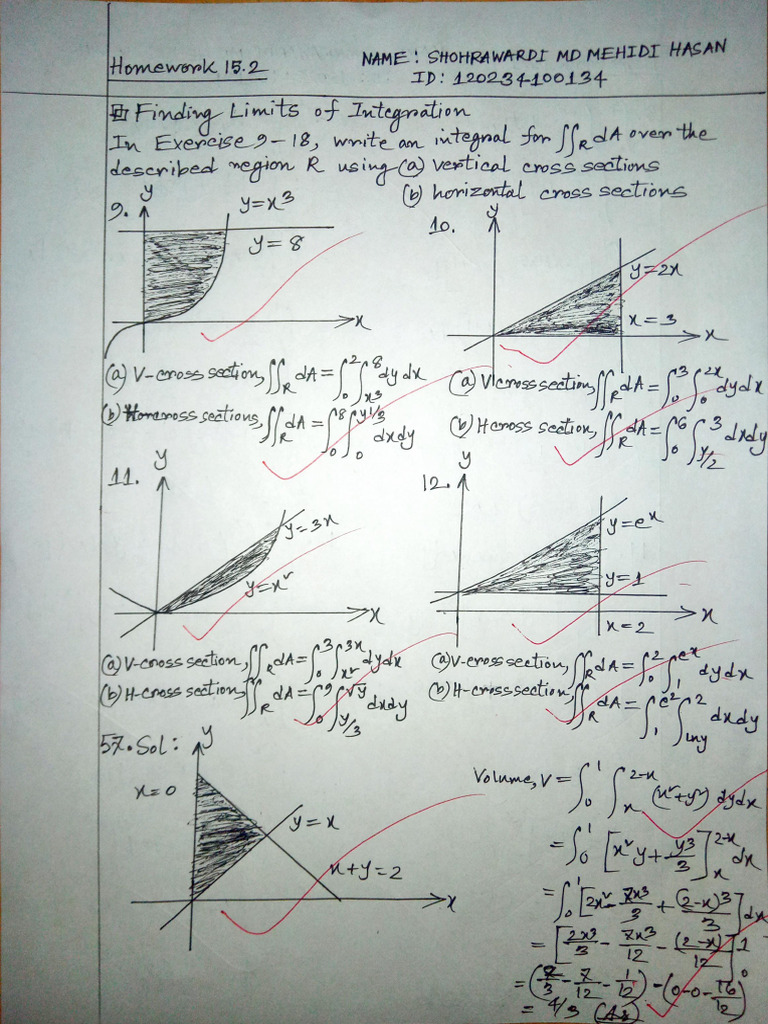 Homework 15.2
NAME: SHOHRAWARDI MD MEHIDI HASAN
ID: 120234100134
Finding Limits of Integration
In Exercise 9-18, write an integral for ∬_R dA over the
described region R using (a) vertical cross sections
(b) horizontal cross sections
9.
y
y=x³
y=8
x
(a) V-cross section, ∬_R dA = ∫_0^2 ∫_{x³}^8 dy dx
cross sections, ∬_R dA = ∫_0^8 ∫_0^{y^{1/3}} dxdy
10.
y
y=2x
x=3
x
(a) V cross section, ∬_R dA = ∫_0^3 ∫_0^{2x} dydx
(b) H cross section, ∬_R dA = ∫_0^6 ∫_{y/2}^3 dxdy
11.
y
y=3x
y=x²
x
(a) V-cross section, ∬_R dA = ∫_0^3 ∫_{x²}^{3x} dydx
(b) H-cross section, ∬_R dA = ∫_0^9 ∫_{y/3}^{√y} dxdy
12.
y
y=eˣ
y=1
x
x=2
(a) V-cross section, ∬_R dA = ∫_0^2 ∫_1^{eˣ} dydx
(b) H-cross section, ∬_R dA = ∫_1^{e²} ∫_{lny}^2 dxdy
57. Sol:
y
x=0
y=x
x+y=2
x
Volume, V = ∫_0^1 ∫_x^{2-x} (x²+y²) dydx
= ∫_0^1 [x²y + y³/3]_x^{2-x} dx
= ∫_0^1 [2x² - 7x³/3 + (2-x)³/3] dx
= [2x³/3 - 7x³/12 - (2-x)/12]_0^1
- 7/12 - 1/12) - (0-0-16/12)
= 4/3